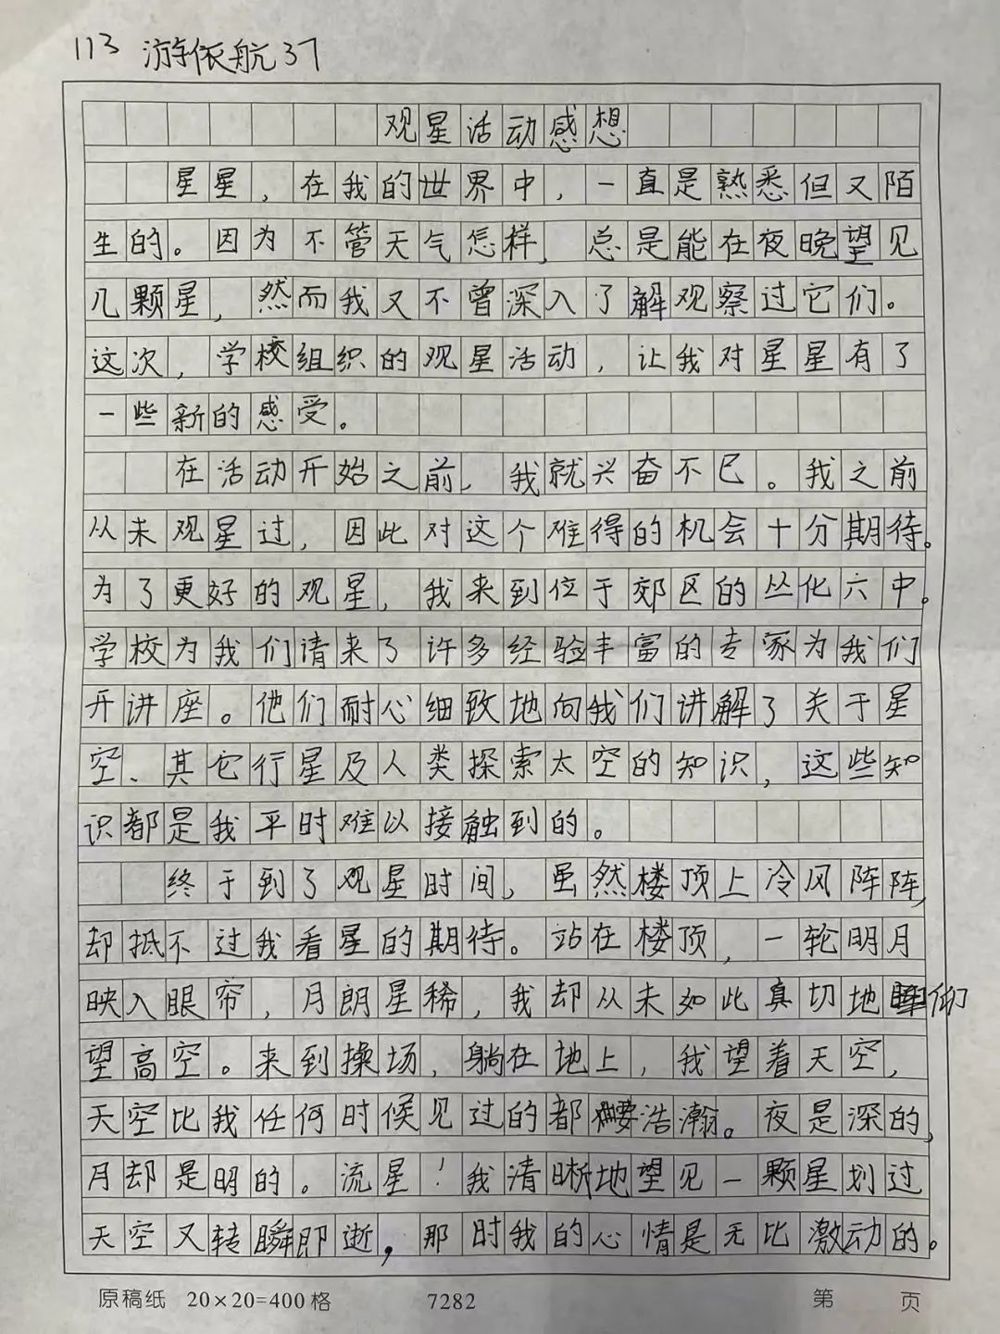 113 游依航 37
观星活动感想
星星，在我的世界中，一直是熟悉但又陌
生的。因为不管天气怎样，总是能在夜晚望见
几颗星，然而我又不曾深入了解观察过它们。
这次，学校组织的观星活动，让我对星星有了
一些新的感受。
在活动开始之前，我就兴奋不已。我之前
从未观星过，因此对这个难得的机会十分期待。
为了更好的观星，我来到位于郊区的丛化六中。
学校为我们请来了许多经验丰富的专家为我们
开讲座。他们耐心细致地向我们讲解了关于星
空、其它行星及人类探索太空的知识，这些知
识都是我平时难以接触到的。
终于到了观星时间，虽然楼顶上冷风阵阵，
却抵不过我看星的期待。站在楼顶，一轮明月
映入眼帘，月朗星稀，我却从未如此真切地仰
望高空。来到操场，躺在地上，我望着天空，
天空比我任何时候见过的都要浩瀚。夜是深的，
月却是明的。流星！我清晰地望见一颗星划过
天空又转瞬即逝，那时我的心情是无比激动的。
原稿纸 20×20=400格 7282 第 页